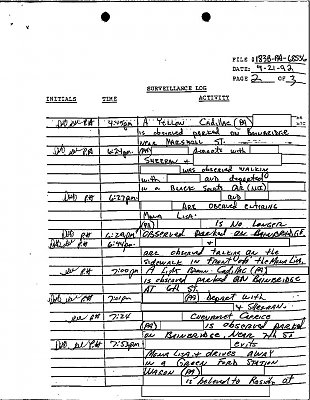 FILE #183B-PA-
DATE: 9-21-92
PAGE 2 OF 3
SURVEILLANCE LOG
INITIALS TIME ACTIVITY
4:45pm A Yellow Cadillac (PA)
is observed parked on Bainbridge
near Marshall St.
6:24pm (PA) departs with
Sheeran +
was observed walking
with and departed
in a Black Sports Car (NJ)
6:27pm and
are observed entering
Mona Lisa.
(PA) is no longer
6:29pm observed parked on Bainbridge
6:44pm +
are observed talking on the
sidewalk in front of the Mona Lisa.
7:00pm A Light Brown Cadillac (PA)
is observed parked on Bainbridge
at 6th St.
7:01pm (PA) depart with
+ Sheeran.
7:24 Chevrolet Caprice
(PA) is observed parked
on Bainbridge near 7th St.
7:53pm exits
Mona Lisa + drives away
in a Green Ford Station
Wagon (PA)
is believed to reside at